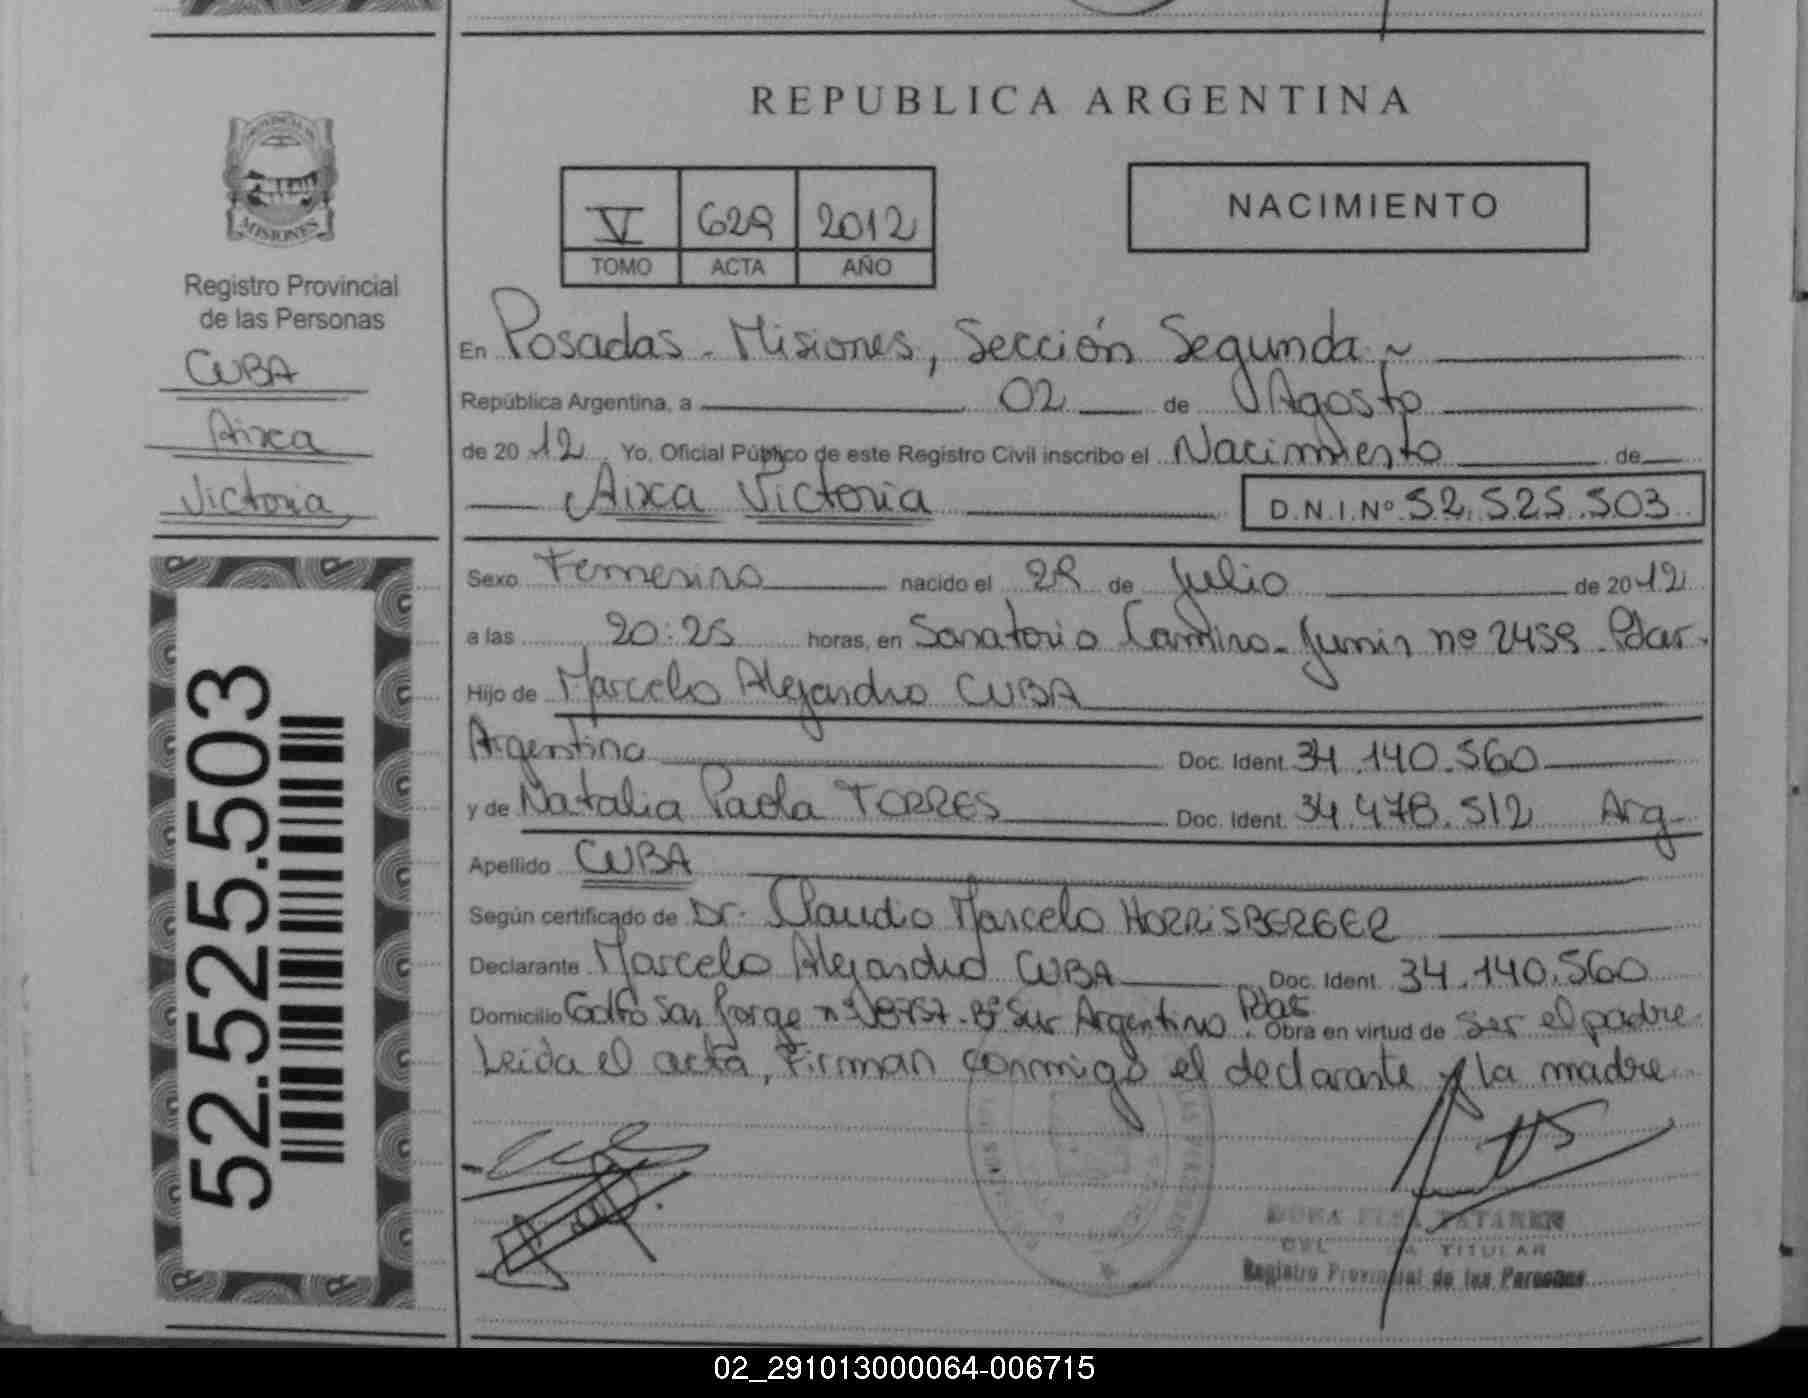 REPUBLICA ARGENTINA
MISIONES
Registro Provincial
de las Personas
CUBA
Aixca
Victoria
52.525.503
V 629 2012
TOMO ACTA AÑO
NACIMIENTO
En Posadas - Misiones, Sección Segunda
República Argentina, a 02 de Agosto
de 20 12 Yo, Oficial Público de este Registro Civil inscribo el Nacimiento de
Aixca Victoria D.N.I.Nº 52.525.503
Sexo Femenino nacido el 29 de Julio de 20 12
a las 20:25 horas, en Sanatorio Camino - Junin nº 2459 - Pdas.
Hijo de Marcelo Alejandro CUBA
Argentina Doc. Ident. 34.140.560
y de Natalia Paola TORRES Doc. Ident. 34.478.512 Arg-
Apellido CUBA
Según certificado de Dr. Claudio Marcelo HORRISBERGER
Declarante Marcelo Alejandro CUBA Doc. Ident. 34.140.560
Domicilio Golfo San Jorge nº 8757 - Bº Sur Argentino Pdas. Obra en virtud de ser el padre
Leida el acta, Firman conmigo el declarante y la madre
TITULAR
Registro Provincial de las Personas
02_291013000064-006715